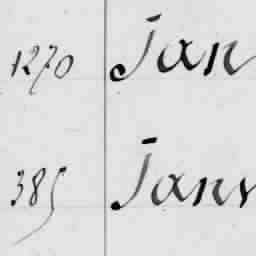 1270 Jan
385 Jans